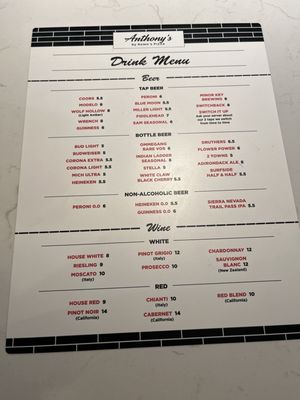 Anthony's
by Romo's Pizza
Drink Menu
Beer
TAP BEER
COORS 5.5
MODELO 6
WOLF HOLLOW 6
(Light Amber)
WRENCH 8
GUINNESS 6
PERONI 6
BLUE MOON 5.5
MILLER LIGHT 5.5
FIDDLEHEAD 7
SAM SEASONAL 6
MINOR KEY
BREWING 6
SWITCHBACK 6
SWITCH IT UP
Ask your server about
our 2 taps we switch
from time to time
BOTTLE BEER
BUD LIGHT 5
BUDWEISER 5
CORONA EXTRA 5.5
CORONA LIGHT 5.5
MICH ULTRA 5
HEINEKEN 5.5
OMMEGANG
RARE VOS 6
INDIAN LADDER
SEASONAL 5
STELLA 5
WHITE CLAW
BLACK CHERRY 5.5
DRUTHERS 6.5
FLOWER POWER 6
2 TOWNS 9
ADIRONDACK ALE 6
SURFSIDE
HALF & HALF 5.5
NON-ALCOHOLIC BEER
PERONI 0.0 6
HEINEKEN 0.0 5.5
GUINNESS 0.0 6
SIERRA NEVADA
TRAIL PASS IPA 5.5
Wine
WHITE
HOUSE WHITE 8
RIESLING 9
MOSCATO 10
(Italy)
PINOT GRIGIO 12
(Italy)
PROSECCO 10
CHARDONNAY 12
SAUVIGNON
BLANC 12
(New Zealand)
RED
HOUSE RED 9
PINOT NOIR 14
(California)
CHIANTI 10
(Italy)
CABERNET 14
(California)
RED BLEND 10
(California)